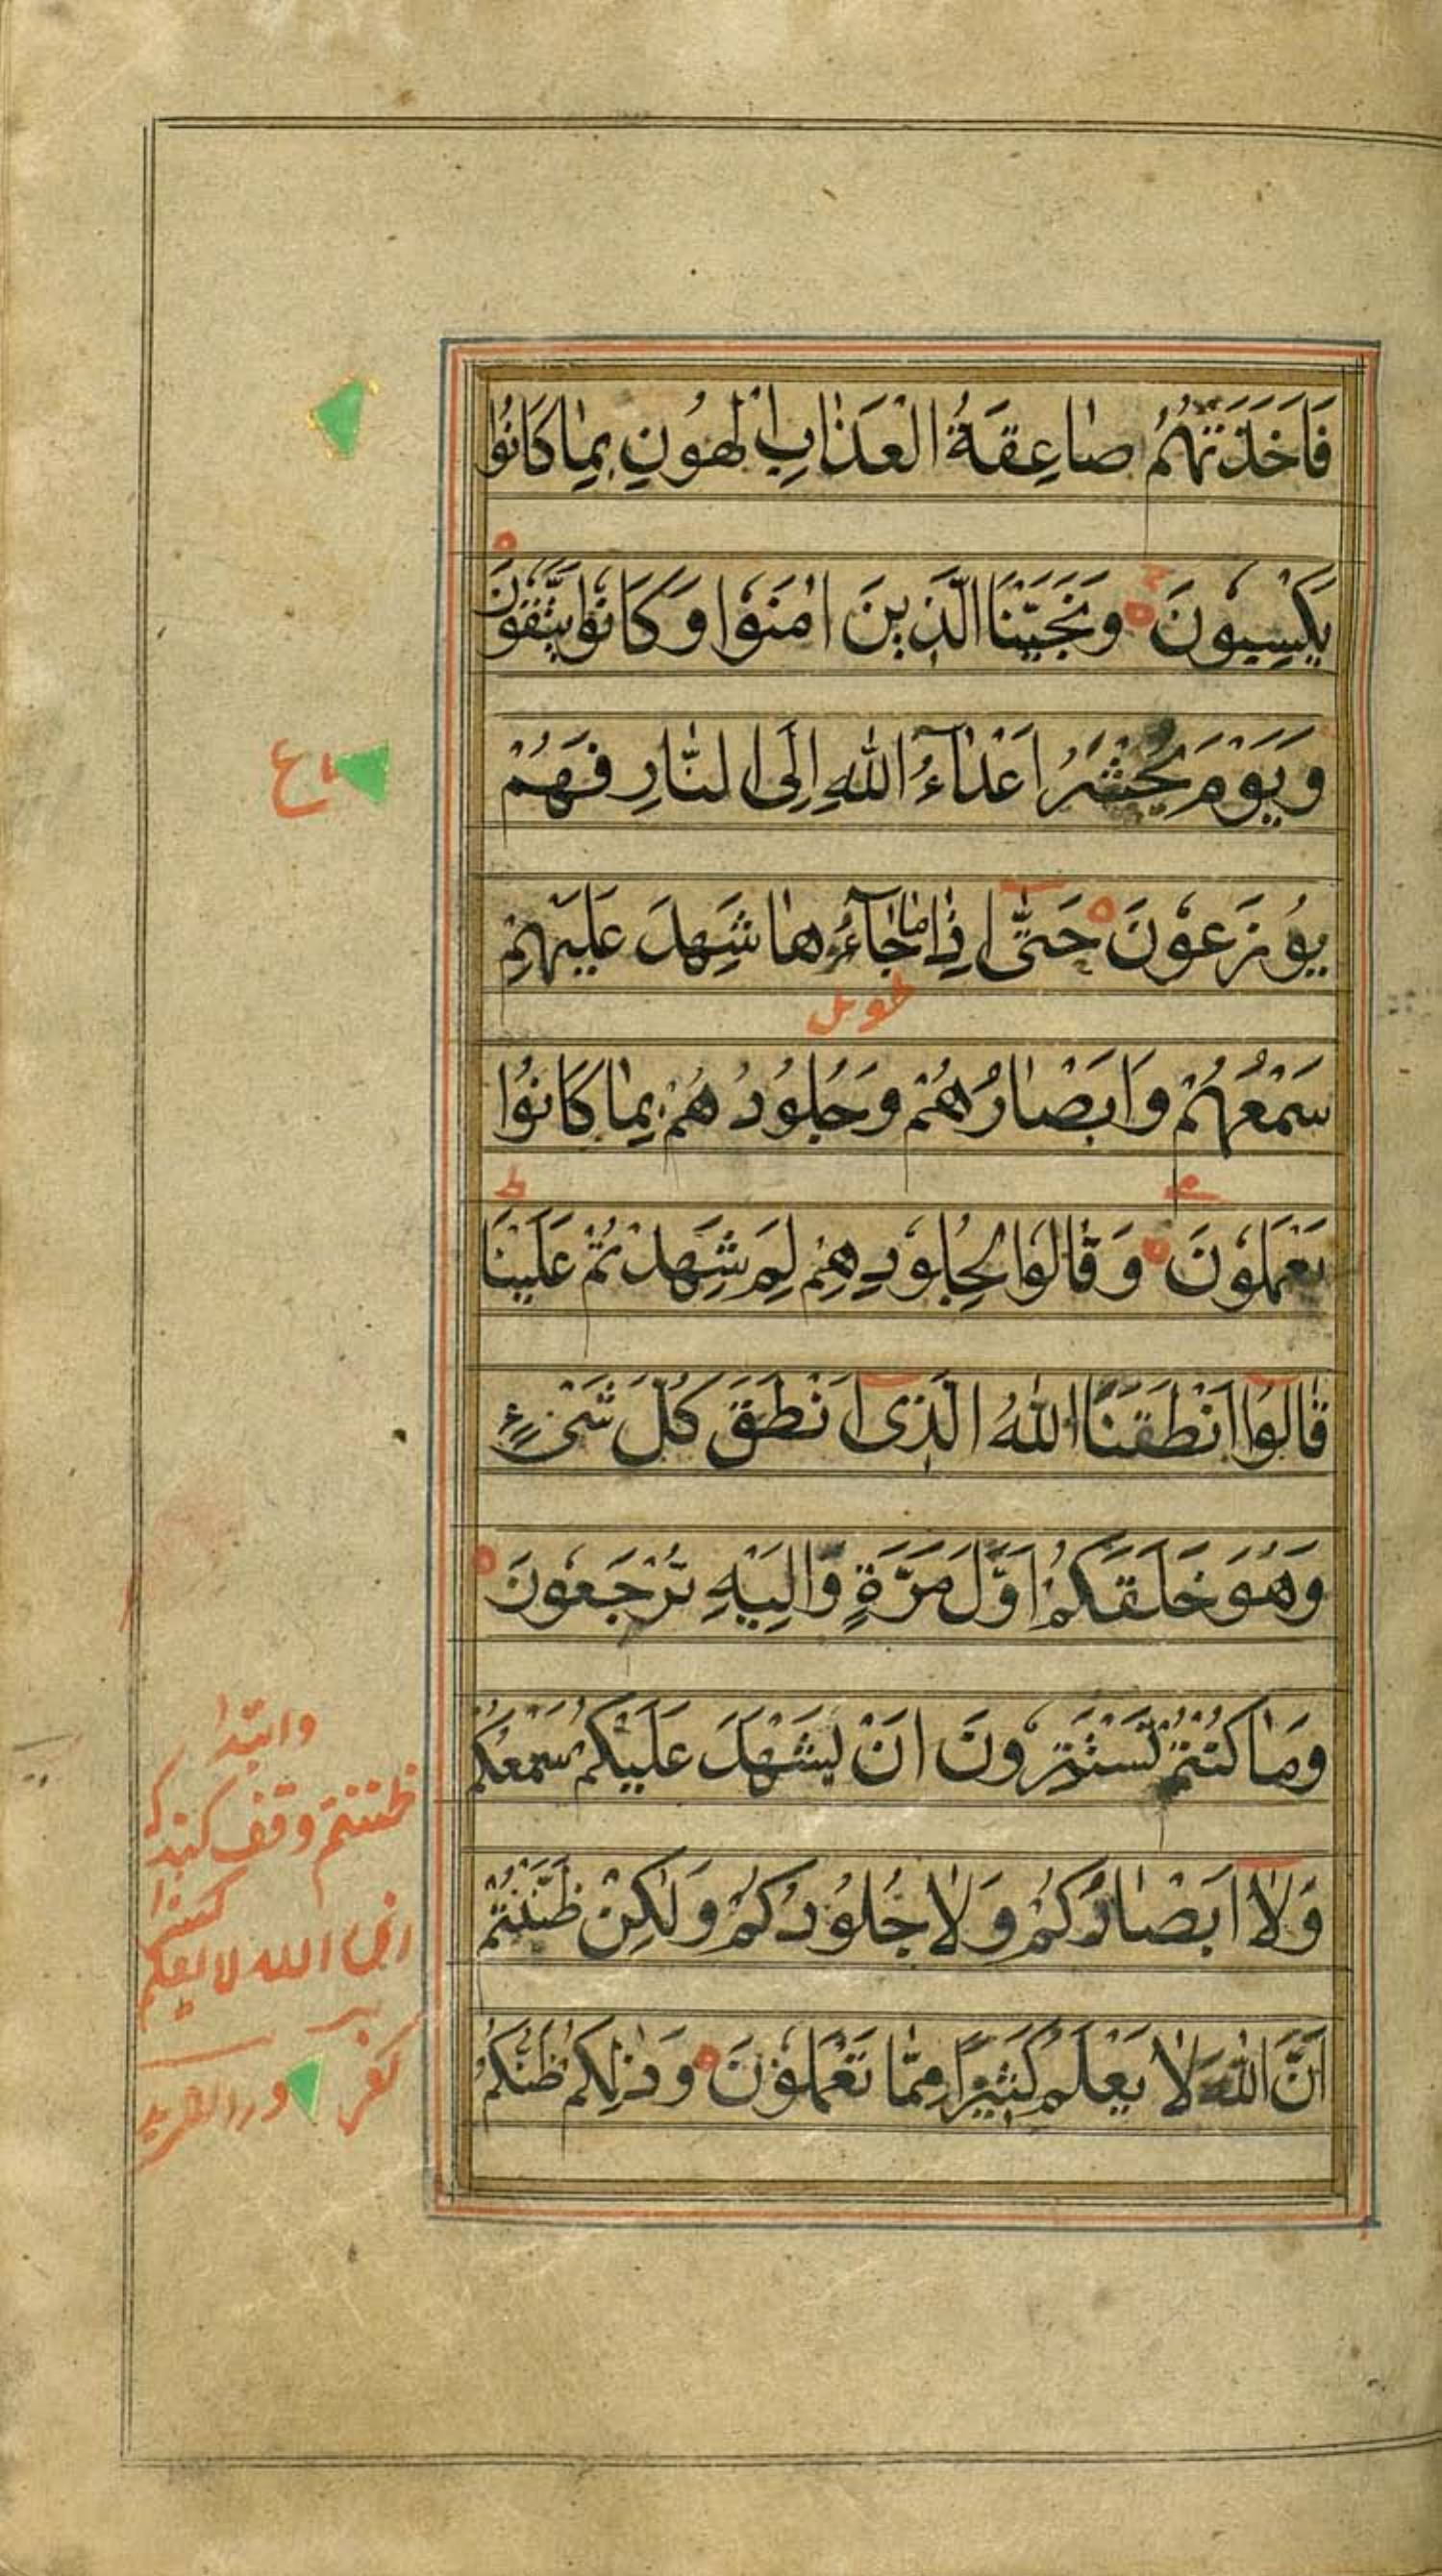 فَاَخَذَتْهُمْ صٰاعِقَةُ الْعَذٰابِ الْهُونِ بِمٰا كٰانُوا
يَكْسِبُونَ وَنَجَّيْنَا الَّذِينَ اٰمَنُوا وَكٰانُوا يَتَّقُونَ
وَيَوْمَ يُحْشَرُ اَعْدٰآءُ اللّٰهِ اِلَى النّٰارِ فَهُمْ
يُوزَعُونَ حَتّٰى اِذٰا مٰا جٰآءُوهٰا شَهِدَ عَلَيْهِمْ
طویل
سَمْعُهُمْ وَاَبْصٰارُهُمْ وَجُلُودُهُمْ بِمٰا كٰانُوا
يَعْمَلُونَ وَقٰالُوا لِجُلُودِهِمْ لِمَ شَهِدْتُمْ عَلَيْنٰا
قٰالُوا اَنْطَقَنَا اللّٰهُ الَّذِى اَنْطَقَ كُلَّ شَىْءٍ
وَهُوَ خَلَقَكُمْ اَوَّلَ مَرَّةٍ وَاِلَيْهِ تُرْجَعُونَ
وَمٰا كُنْتُمْ تَسْتَتِرُونَ اَنْ يَشْهَدَ عَلَيْكُمْ سَمْعُكُمْ
وَلٰا اَبْصٰارُكُمْ وَلٰا جُلُودُكُمْ وَلٰكِنْ ظَنَنْتُمْ
اَنَّ اللّٰهَ لٰا يَعْلَمُ كَثِيرًا مِمّٰا تَعْمَلُونَ وَذٰلِكُمْ ظَنُّكُمُ
ع
وابتدا
ظننتم وقف کنند
ان الله لا یعلم
کفر